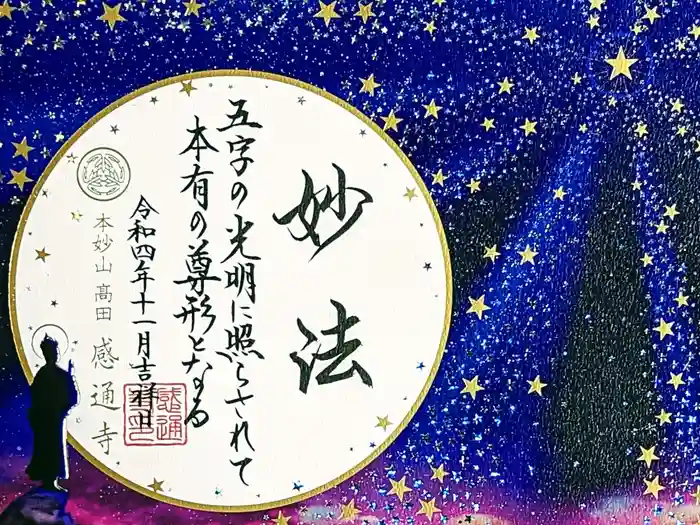 妙法
五字の光明に照らされて
本有の尊形となる
令和四年十一月吉祥日
本妙山 高田 感通寺
感通